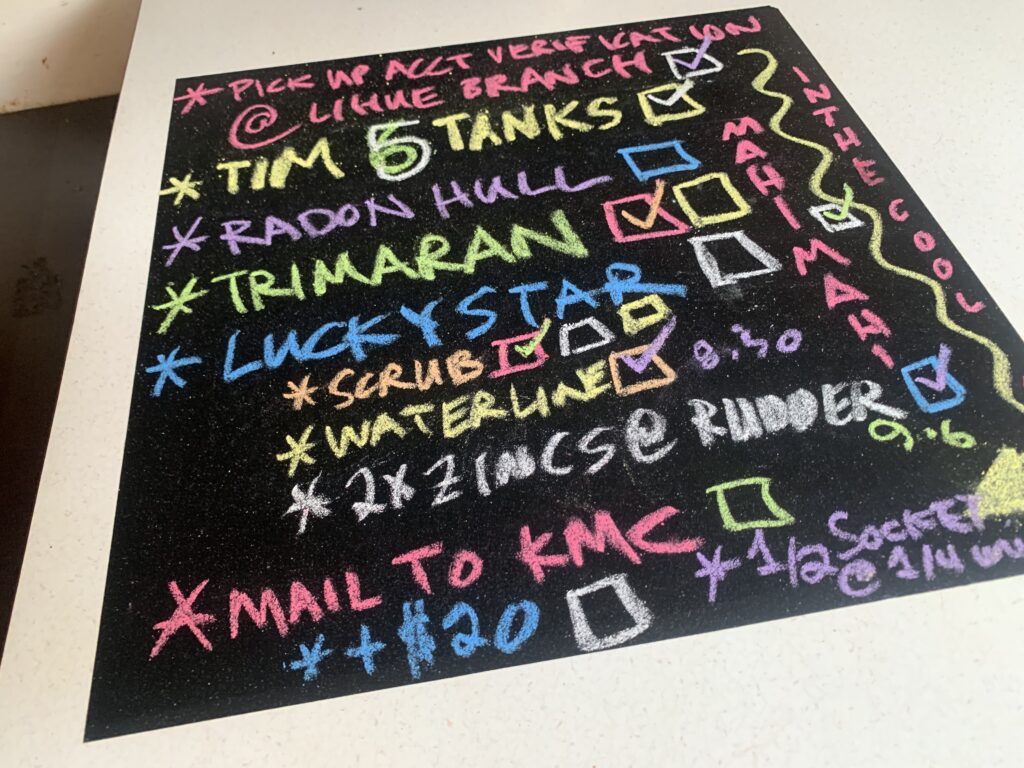 * PICK UP ACCT VERIFICATION
@ LIHUE BRANCH
* TIM 5 TANKS
* RADON HULL
* TRIMARAN
* LUCKY STAR
* SCRUB
* WATERLINE 8:30
* 2X ZINCS @ RUDDER
9.6
* MAIL TO KMC
* + $20
* 1/2 SOCKET
@ 1/4
MAHI MAHI
IN THE COOL